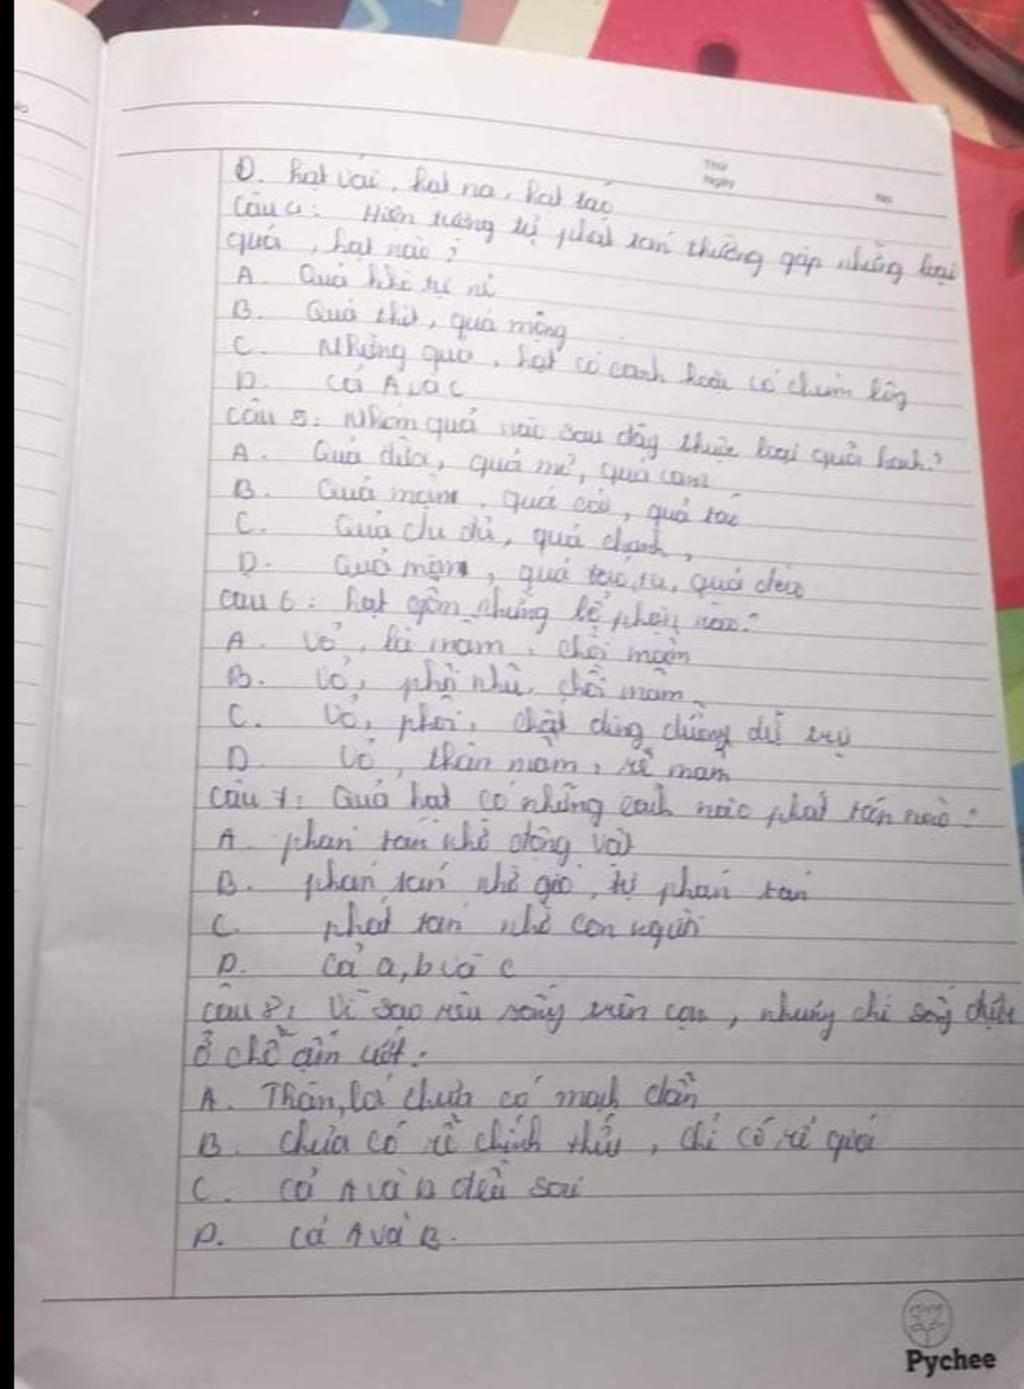 D. hạt vải, hạt na, hạt táo
Câu 4: Hiện tượng tự phát tán thường gặp những loại
quả, hạt nào?
A. Quả khô tự nẻ
B. Quả thịt, quả mọng
C. Những quả, hạt có cánh hoặc có chùm lông
D. Cả A và C
Câu 5: Nhóm quả nào sau đây thuộc loại quả hạch?
A. Quả dừa, quả mơ, quả cam
B. Quả mận, quả cải, quả táo
C. Quả đu đủ, quả chanh,
D. Quả mận, quả táo ta, quả dừa
Câu 6: hạt gồm những bộ phận nào?
A. Vỏ, lá mầm, chồi mầm
B. Vỏ, phôi nhũ, chồi mầm
C. Vỏ, phôi, chất dinh dưỡng dự trữ
D. Vỏ, thân mầm, rễ mầm
Câu 7: Quả hạt có những cách nào phát tán nào?
A. phán tán nhờ động vật
B. phán tán nhờ gió, tự phán tán
C. phát tán nhờ con người
D. Cả a, b và c
Câu 8: Vì sao rêu sống trên cạn, nhưng chỉ sống được
ở chỗ ẩm ướt:
A. Thân, lá chưa có mạch dẫn
B. Chưa có rễ chính thức, chỉ có rễ giả
C. Cả A và B đều sai
D. Cả A và B.
Thứ
Ngày
No
Pychee